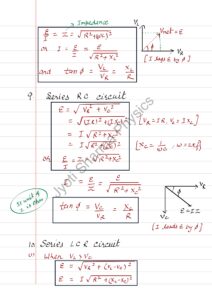 Impedance
E/I = Z = √R²+(XL)²
or I = E/Z = E/√R²+XL²
and tan ϕ = VL/VR = XL/R
VL
Vnet = E
ϕ
VR
[I lags E by ϕ]
9 Series RC circuit
E = √VR² + VC²
= √(IR)² + (IXC)²
= I √R² + XC²
[VR = IR, VC = IXC]
= I √R² + XC²
or E/I = √R² + XC²
[XC = 1/ωC, ω = 2πf]
I = E/Z = E/√R² + XC²
SI unit of Z is ohm
tan ϕ = VC/VR = XC/R
VR
ϕ
VC
E = IZ
[I leads E by ϕ]
10 Series LCR circuit
(i) When VL > VC
E = √VR² + (VL-VC)²
E = I √R² + (XL-XC)²
Jyoti Sharma Physics